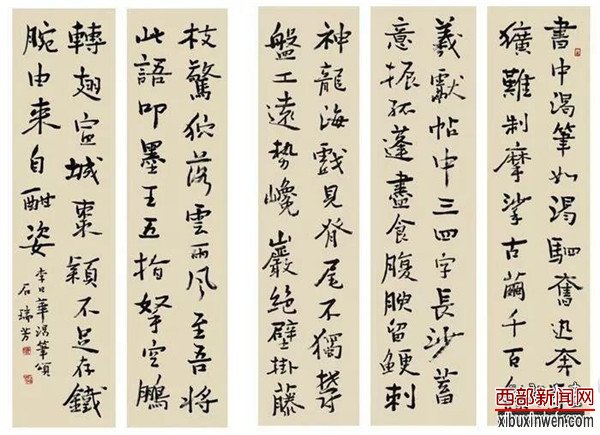 書中渴筆如渴驷奮迅奔
獷難制摩挲古繭千百
羲獻帖中三四字長沙蓄
意振孤蓬盡食腹腴留鯁刺
神龍海戲見脊尾不獨鬱
盤工遠勢巉巖絕壁掛藤
枝驚狖落雲雨風至吾將
此語叩墨王五指拏空鵬
轉翅宣城棗穎不足存鐵
腕由來自酣姿
李日華渴筆頌
石瑞芳
西部新闻网
xibuxinwen.com